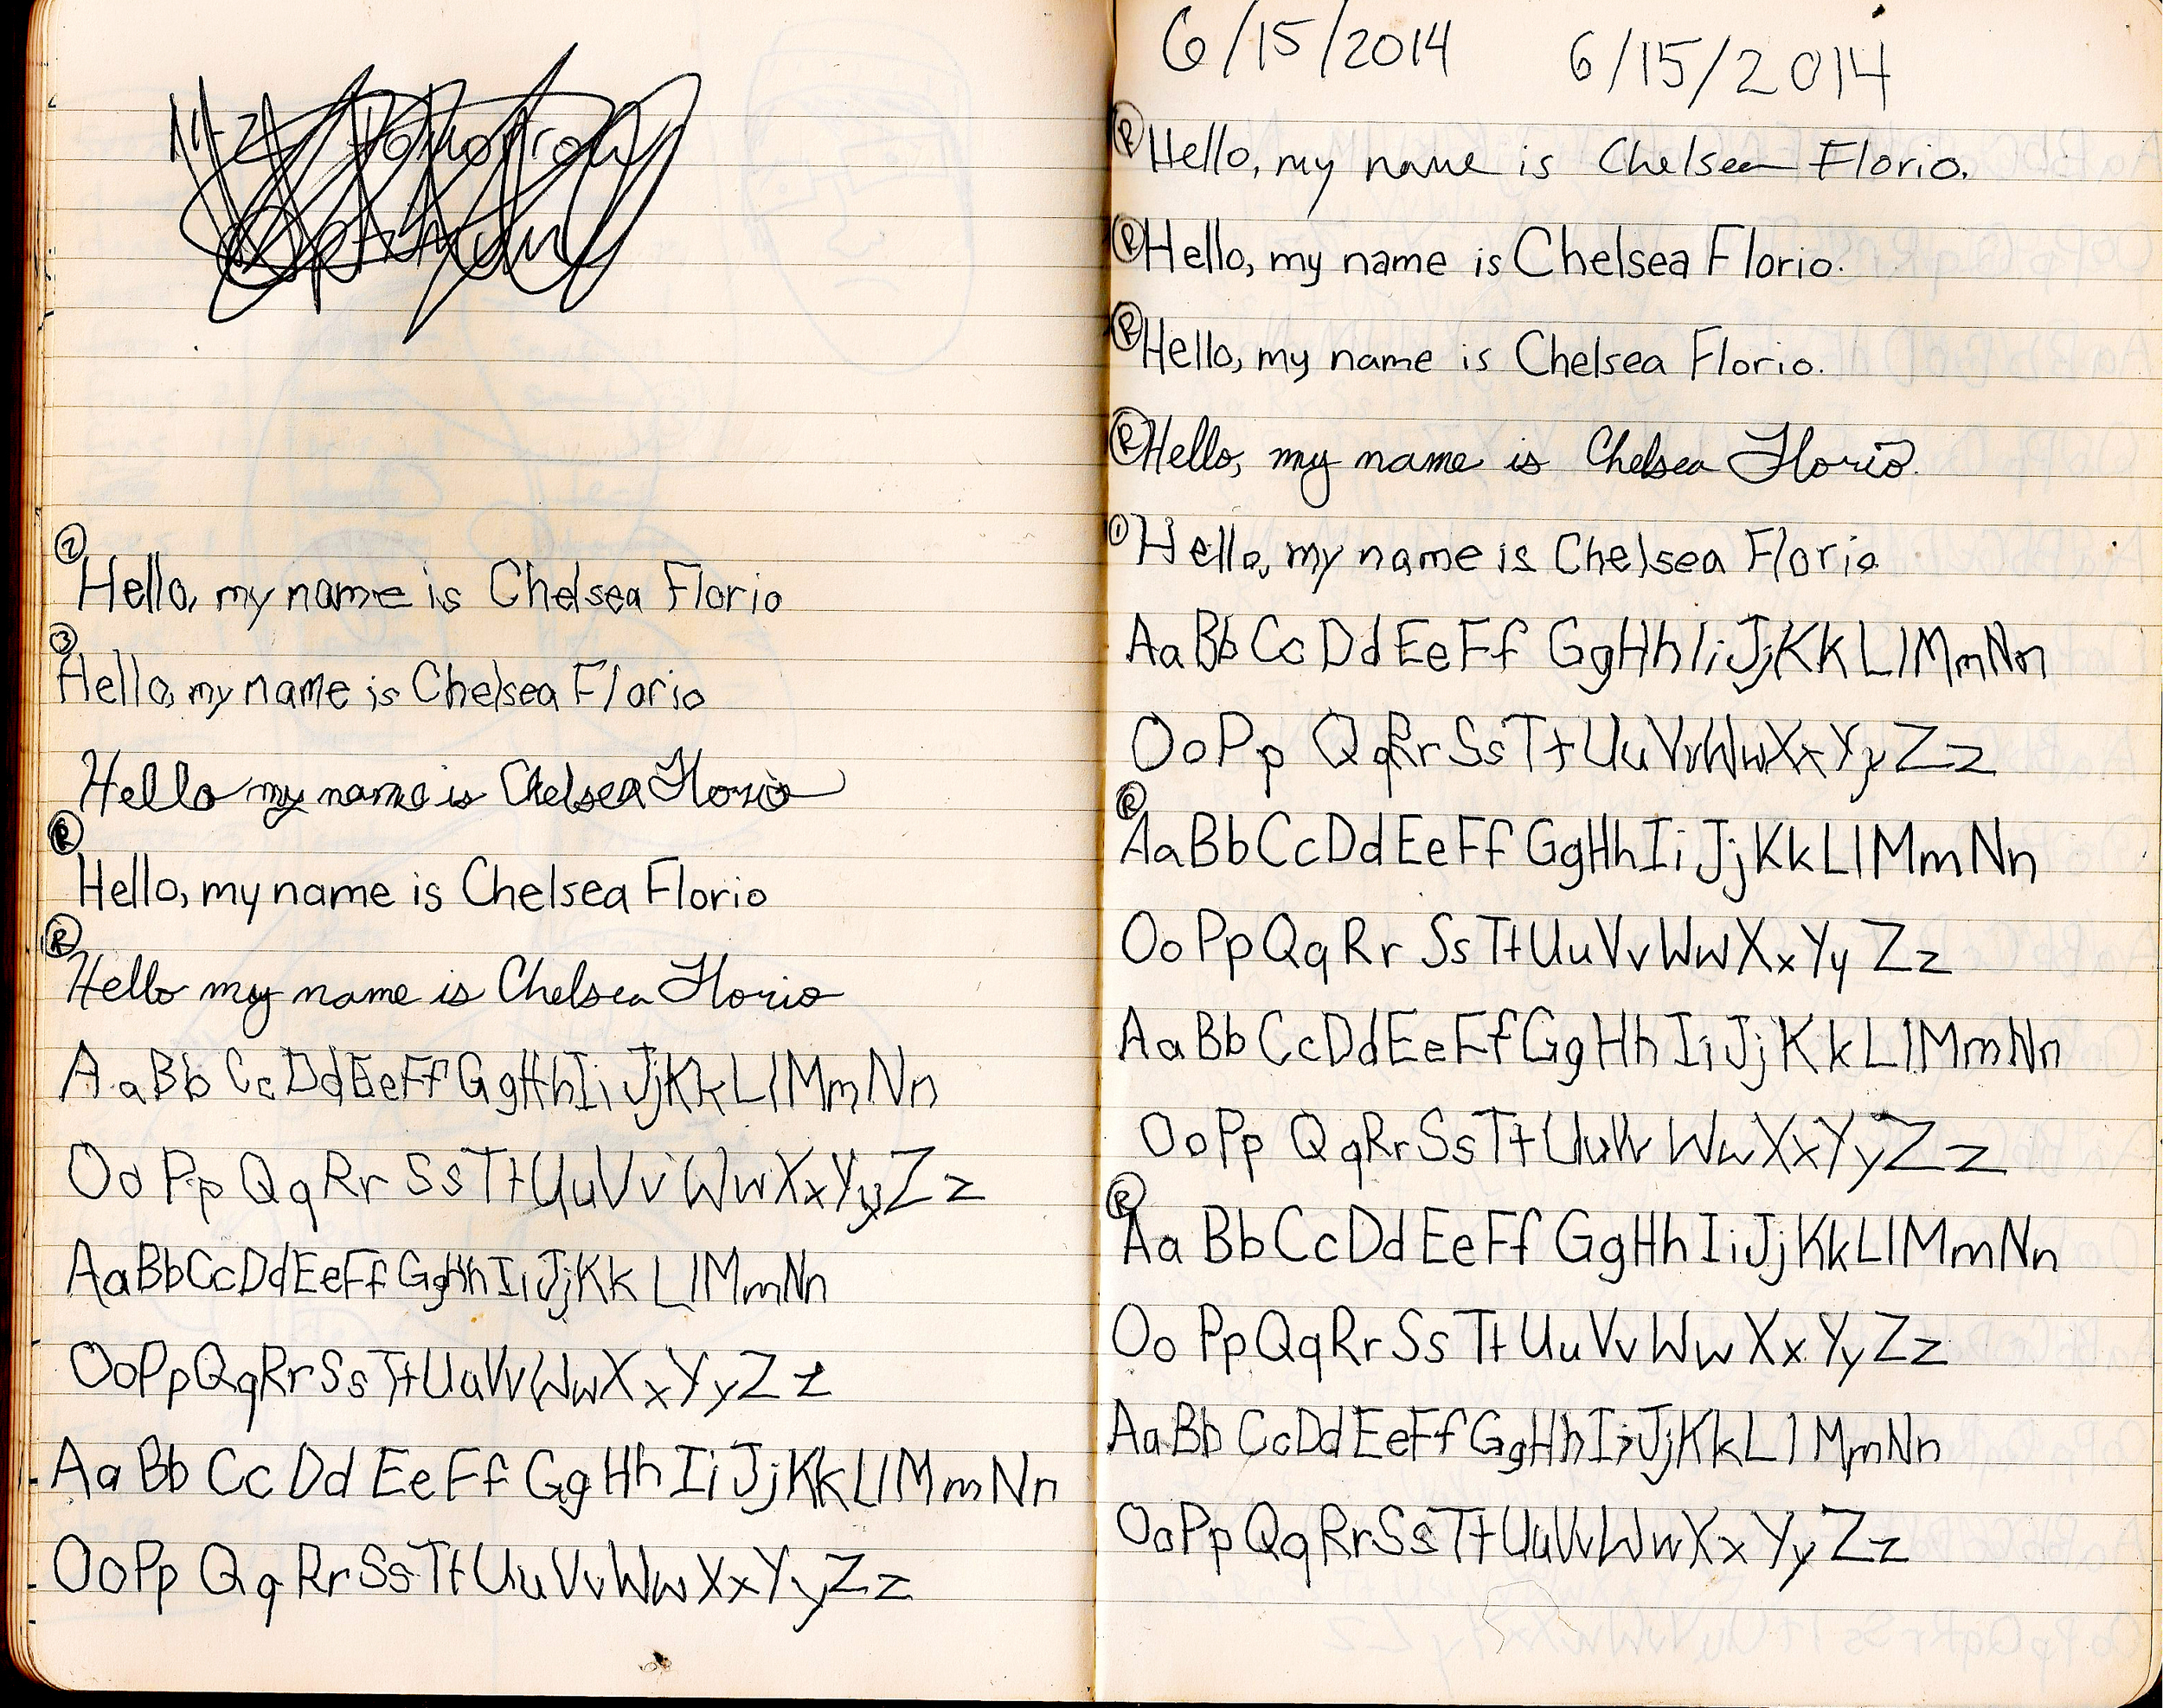 ② Hello, my name is Chelsea Florio
③ Hello, my name is Chelsea Florio
Hello my name is Chelsea Florio
Ⓡ Hello, my name is Chelsea Florio
Ⓡ Hello my name is Chelsea Florio
AaBbCcDdEeFfGgHhIiJjKkLlMmNn
OoPpQqRrSsTtUuVvWwXxYyZz
AaBbCcDdEeFfGgHhIiJjKkLlMmNn
OoPpQqRrSsTtUuVvWwXxYyZz
AaBbCcDdEeFfGgHhIiJjKkLlMmNn
OoPpQqRrSsTtUuVvWwXxYyZz
6/15/2014 6/15/2014
Ⓡ Hello, my name is Chelsea Florio.
Ⓡ Hello, my name is Chelsea Florio.
Ⓡ Hello, my name is Chelsea Florio.
Ⓡ Hello, my name is Chelsea Florio.
① Hello, my name is Chelsea Florio
AaBbCcDdEeFfGgHhIiJjKkLlMmNn
OoPpQqRrSsTtUuVvWwXxYyZz
Ⓡ AaBbCcDdEeFfGgHhIiJjKkLlMmNn
OoPpQqRrSsTtUuVvWwXxYyZz
AaBbCcDdEeFfGgHhIiJjKkLlMmNn
OoPpQqRrSsTtUuVvWwXxYyZz
Ⓡ AaBbCcDdEeFfGgHhIiJjKkLlMmNn
OoPpQqRrSsTtUuVvWwXxYyZz
AaBbCcDdEeFfGgHhIiJjKkLlMmNn
OoPpQqRrSsTtUuVvWwXxYyZz